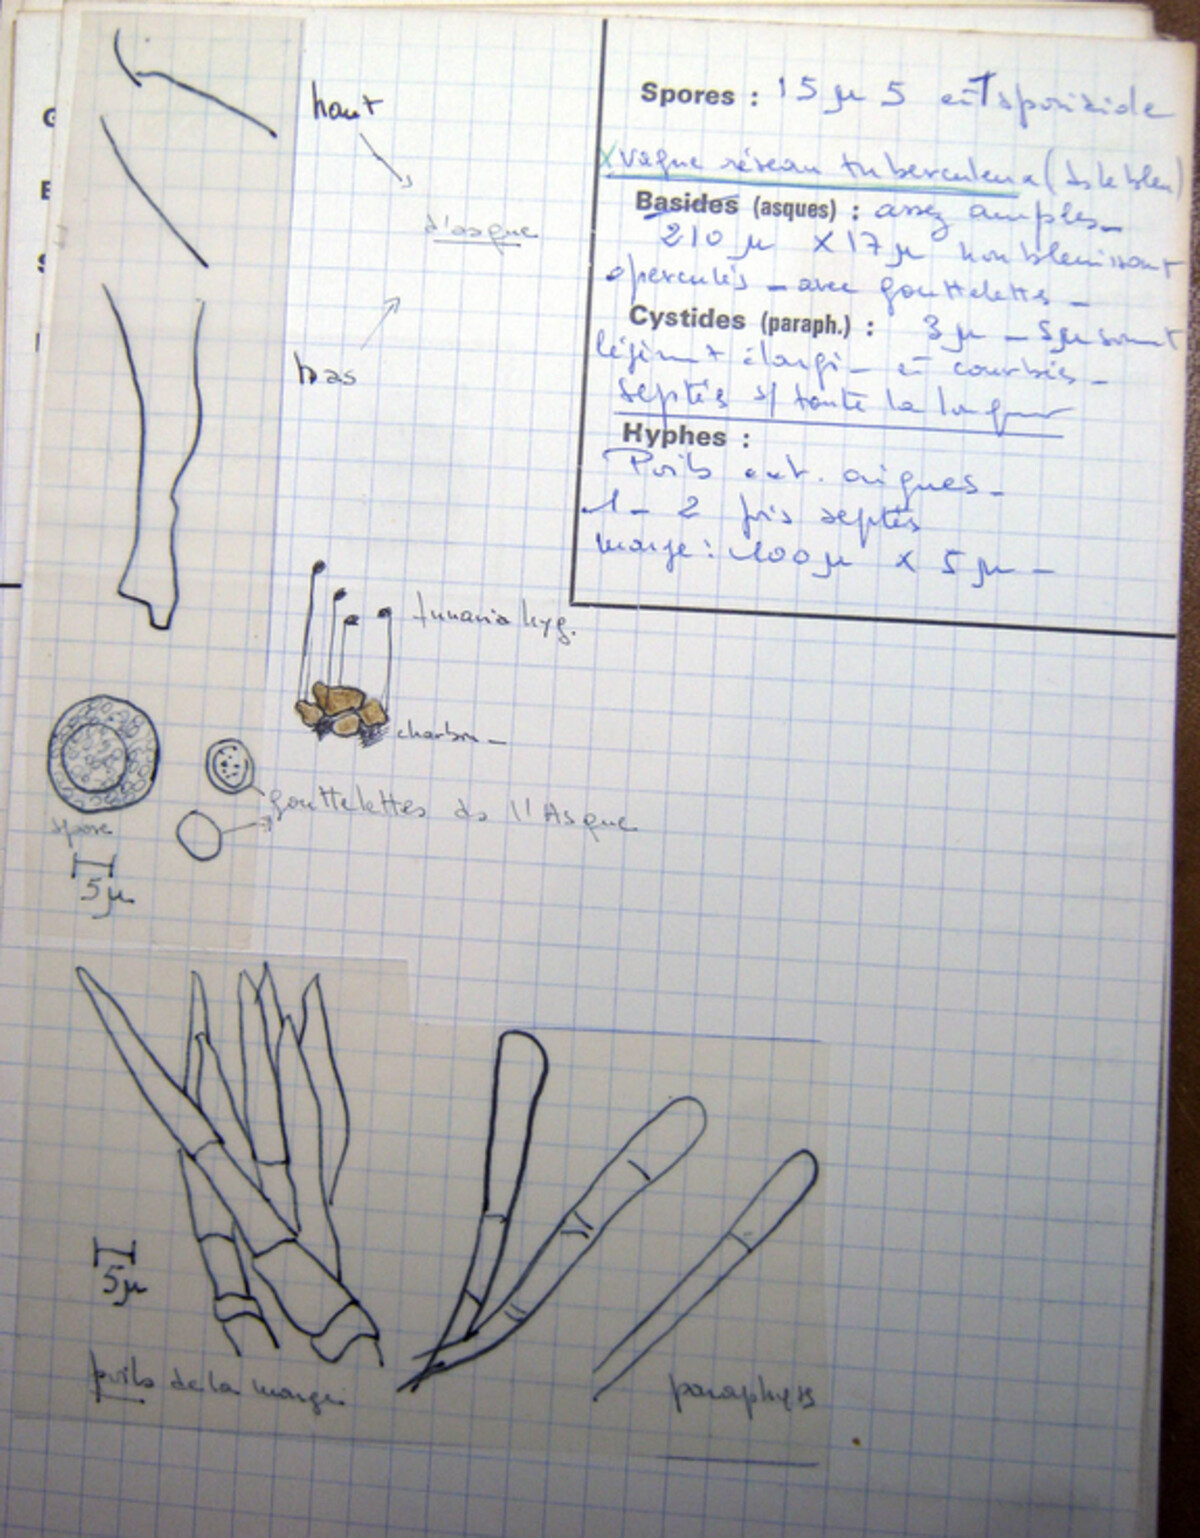 haut
d'asque
bas
Spores : 15 µ 5 et
vague réseau tuberculeux (ds le bleu)
Basides (asques) : assez amples_
210 µ x 17 µ non bleuissant
operculés _ avec gouttelettes _
Cystides (paraph.) : 3 µ _ 5µ
légèrmt élargi _ et courbés _
septés s/ toute la longueur
Hyphes :
Poils ext. aigues _
1 _ 2 fois septés
marge : 100 µ x 5 µ _
funaria hyg.
charbon _
gouttelettes ds l'Asque
spore
5µ
5µ
poils de la marge
paraphyses
G
E
S